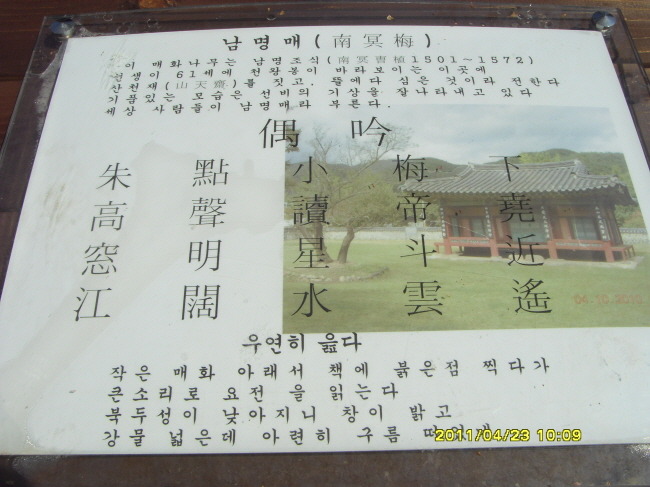 남명매(南冥梅)
이 매화나무는 남명조식(南冥曺植1501~1572)
선생이 61세에 천왕봉이 바라보이는 이곳에
산천재(山天齋)를 짓고, 뜰에다 심은 것이라 전한다
기품있는 모습은 선비의 기상을 잘나타내고 있다
세상 사람들이 남명매라 부른다.
偶吟
朱點小梅下
高聲讀帝堯
窓明星斗近
江闊水雲遙
04.10.20
우연히 읊다
작은 매화 아래서 책에 붉은점 찍다가
큰소리로 요전을 읽는다
북두성이 낮아지니 창이 밝고
강물 넓은데 아련히 구름
2011/04/23 10:09